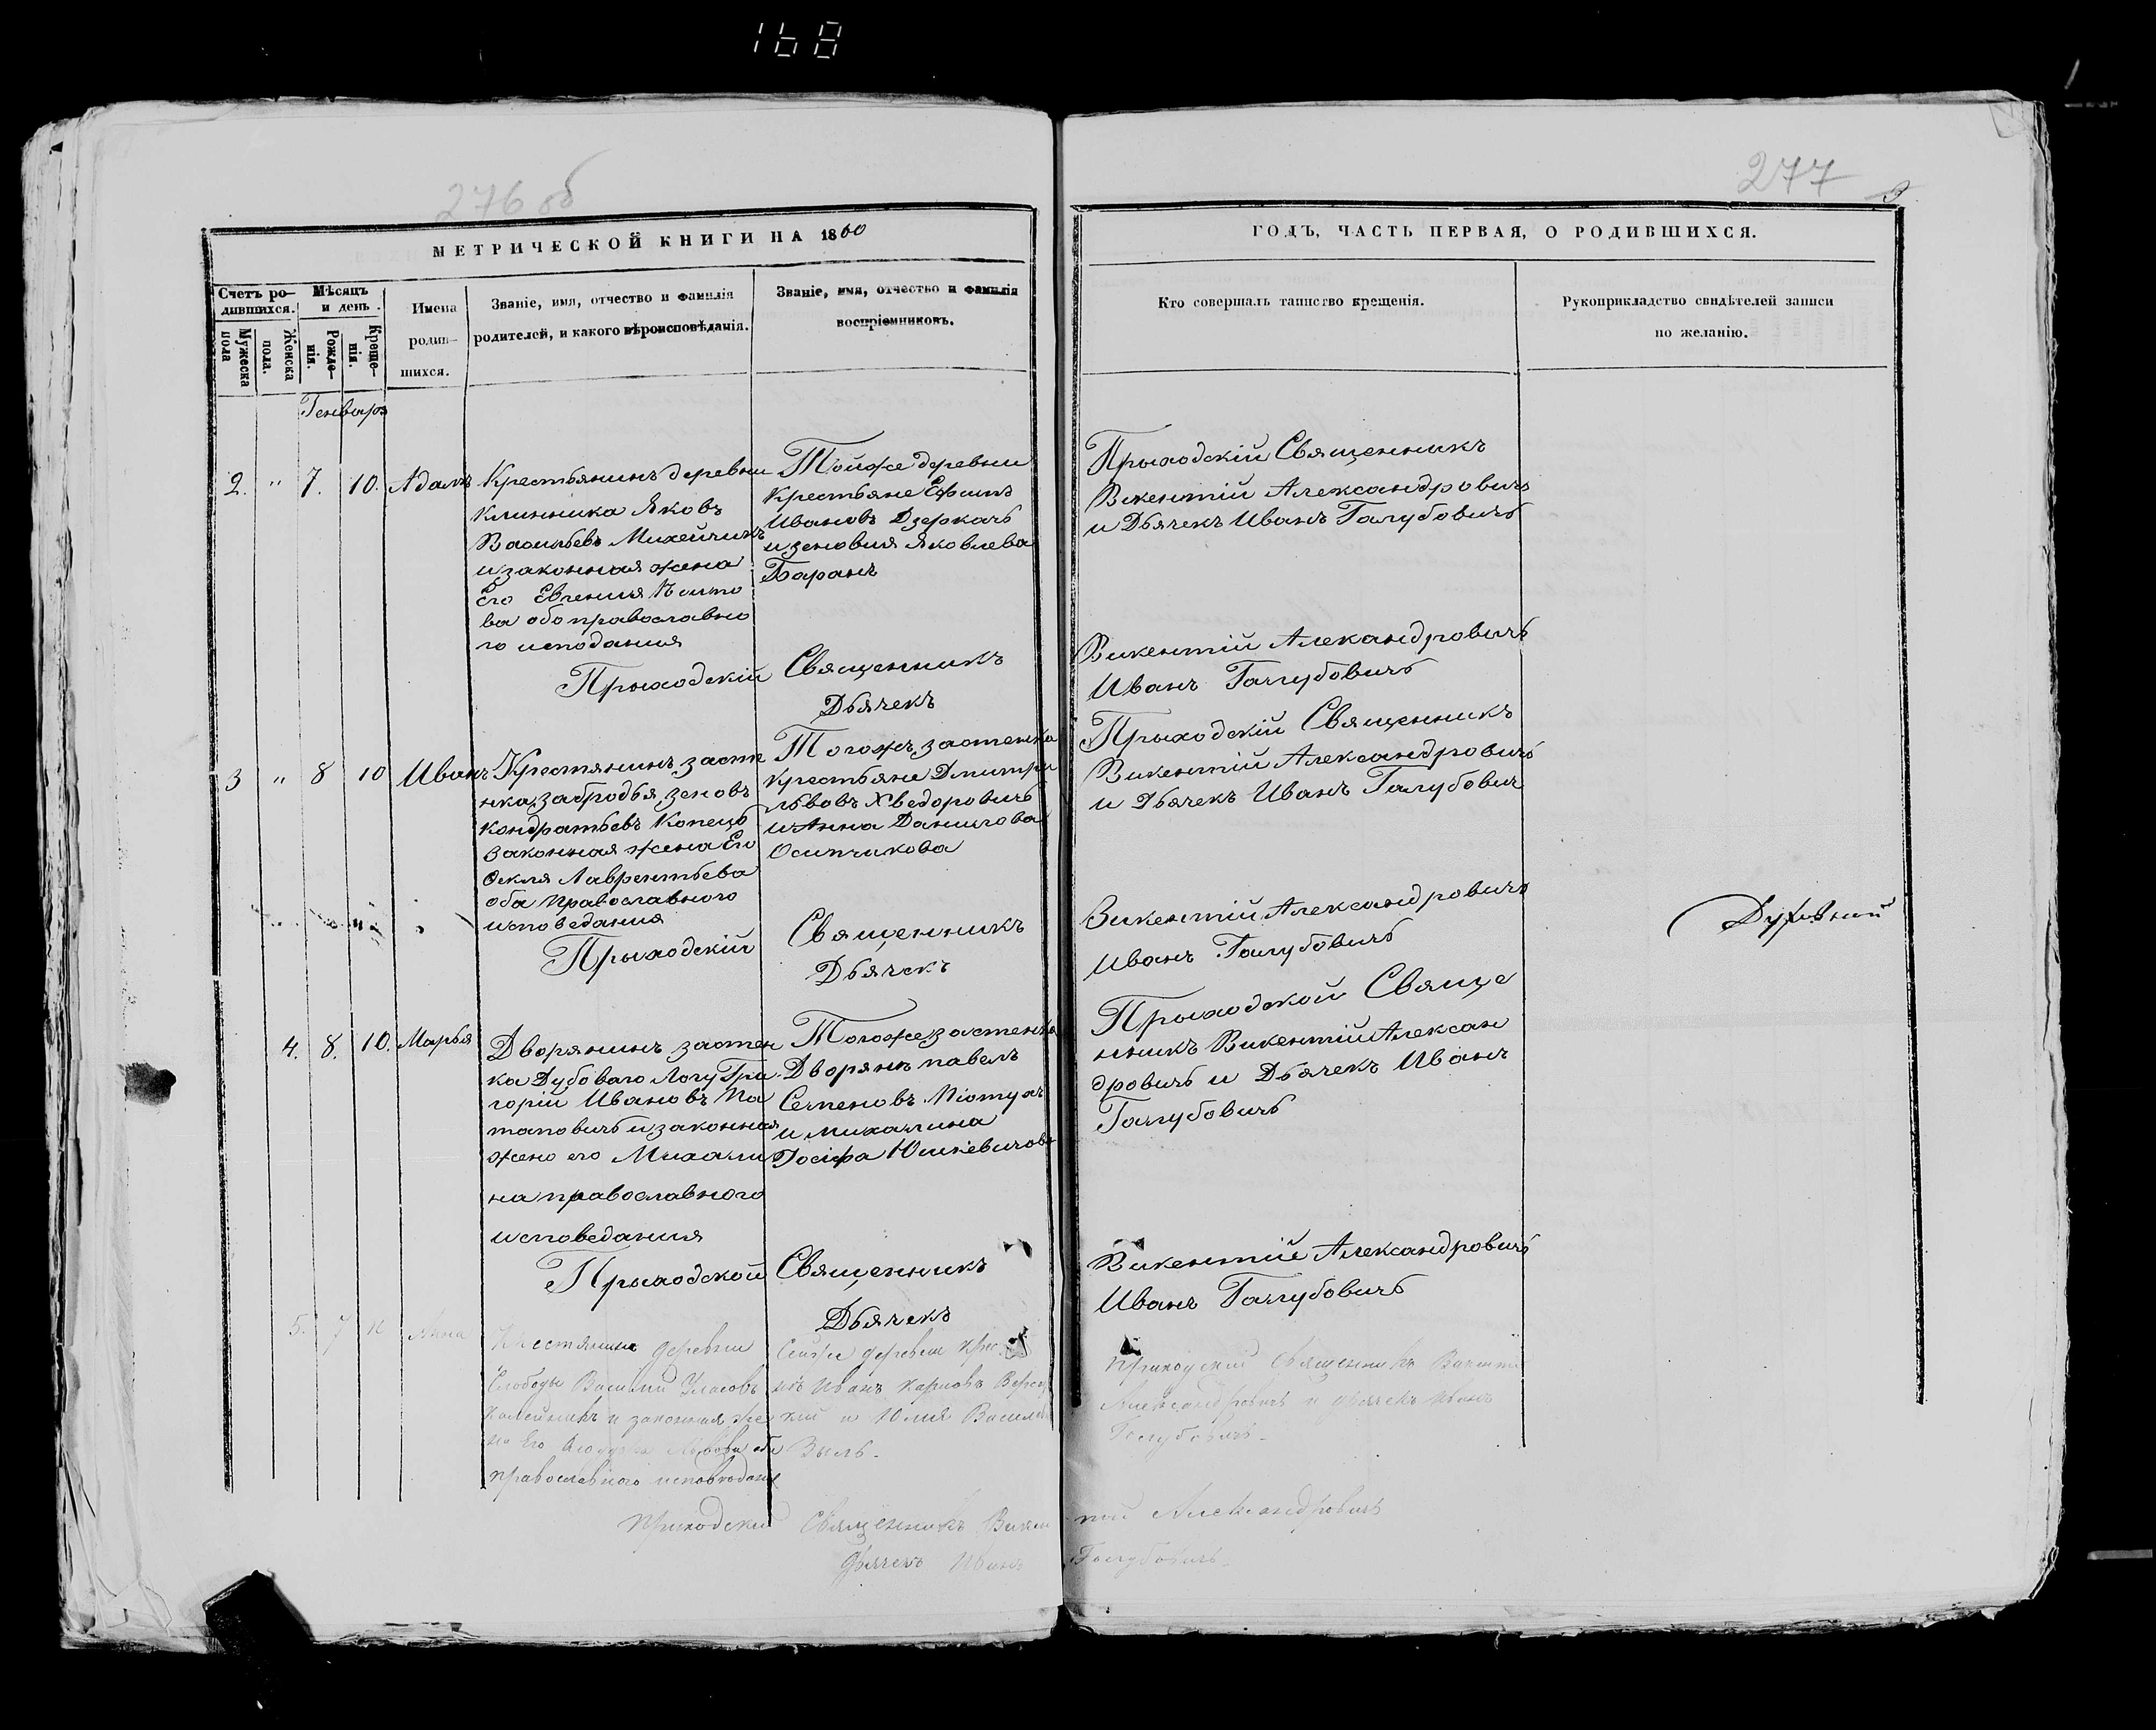 168
276 об
277
3
МЕТРИЧЕСКОЙ КНИГИ НА 1860
ГОДЪ, ЧАСТЬ ПЕРВАЯ, О РОДИВШИХСЯ.
Счетъ ро-
дившихся.
Мужеска
пола
Женска
пола.
Мѣсяцъ
и день.
Рожде-
нія.
Креще-
нія.
Имена
родив-
шихся.
Званіе, имя, отчество и фамилія
родителей, и какого вѣроисповѣданія.
Званіе, имя, отчество и фамилія
воспріемниковъ.
Кто совершалъ таинство крещенія.
Рукоприкладство свидѣтелей записи
по желанію.
Генваря
2. " 7. 10. Адамъ
Крестьянинъ деревни
Клинника Яковъ
Васильевъ Михейчикъ
и законная жена
Его Евгения
ва обо православно
го исподания
Тойже деревни
Крестьяне Ефимъ
Ивановъ Дзеркачь
и зеновия Яковлева
Баранъ
Прыходскій Священникъ
Викентій Александровичъ
и Дьячекъ Иванъ Галубовичъ
Прыходскій Священникъ
Викентій Александровичъ
Дьячекъ
Иванъ Галубовичъ
3 " 8 10 Иванъ
Крестянинъ засте
нка забродья зеновъ
кондратьевъ Копецъ
Законная жена Его
Фекля Лаврентьева
оба православного
исповедания
Тогожъ застенка
крестьяне Дмитри
львовъ Хведоровичъ
и Анна Данилова
Осипчикова
Прыходскій Священникъ
Викентій Александровичъ
и Дьячекъ Иванъ Галубович
Прыходскій Священникъ
Викентій Александровичъ
Дьячекъ
Иванъ Галубовичъ
4. 8. 10. Марья
Дворянинъ застен
ка Дубоваго Логу Гри
горій Ивановъ По
таповичъ и законная
жено его Михали
на православного
исповедания
Тогоже застенка
Дворянъ павелъ
Семеновъ
и михалина
Іосифа Юшкевичова
Прыходской Свяще
нникъ Викентій Алексан
дровичъ и Дьячекъ Иванъ
Галубовичъ
Прыходской Священникъ
Викентій Александровичъ
Дьячекъ
Иванъ Галубовичъ
5. 7 Анна
Крестянинъ деревни
Слободы Василий Уласовъ
и законная же
на Его Львова оба
православного исповѣдания
деревни крес
нъ Иванъ Карповъ
и Юлия Василь
Зыль.
приходский Священникъ Викенти
Александровичъ и дьячекъ Иванъ
Голубовичъ.
приходский Священникъ Викен
тий Александровичъ
дьячекъ Иванъ
Голубовичъ.